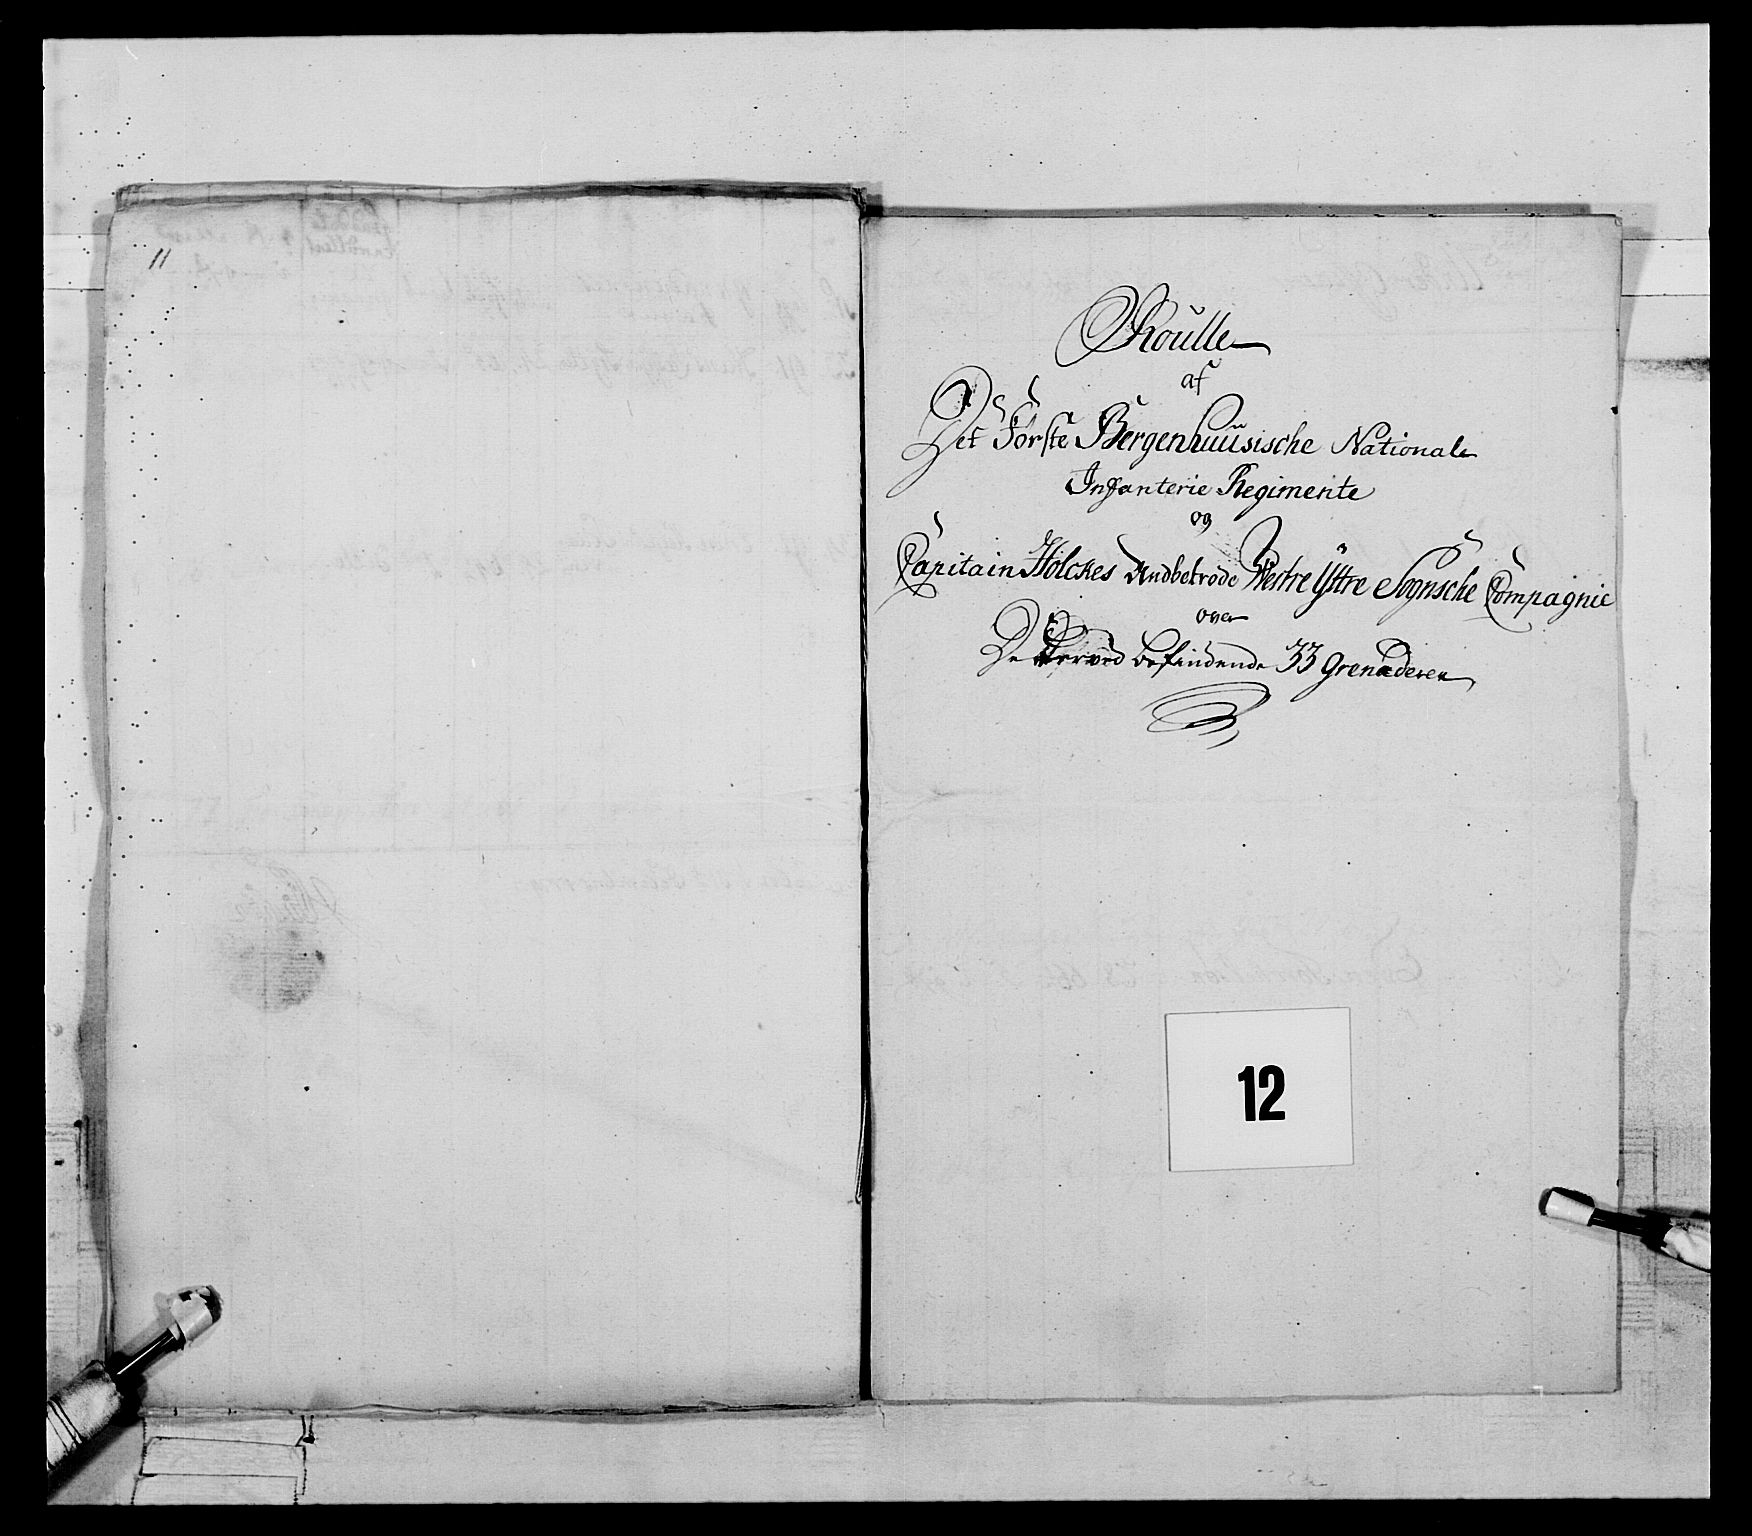 11
Roulle
af
Det Förste Bergenhuusische National
Infanterie Regimente
og
Capitain Holckes Andbetrode Westre Yttre Sognsche Compagnie
over
De Herved befindende 33 Grenaderer
12